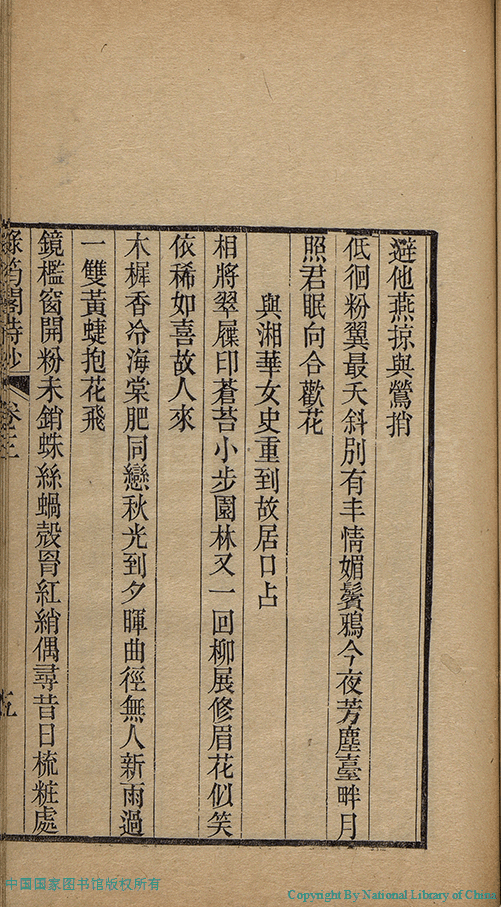 避他燕掠與鶯捎
低徊粉翼最夭斜別有丰情媚鬢鴉今夜芳塵臺畔月
照君眠向合歡花
與湘華女史重到故居口占
相將翠屧印蒼苔小步園林又一回柳展修眉花似笑
依稀如喜故人來
木樨香冷海棠肥同戀秋光到夕暉曲徑無人新雨過
一雙黃蜨抱花飛
鏡檻窗開粉未銷蛛絲蝸殼罥紅綃偶尋昔日梳粧處
筠閣詩鈔
卷三
五
中国国家图书馆版权所有
Copyright By National Library of China